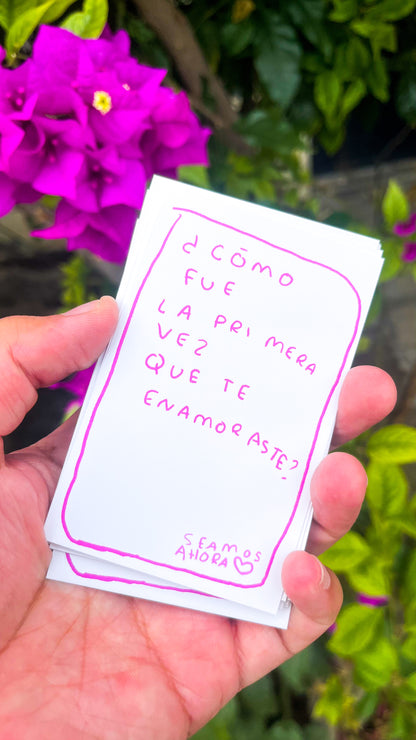 ¿CÓMO
FUE
LA PRIMERA
VEZ
QUE TE
ENAMORASTE?
SEAMOS
AHORA♡